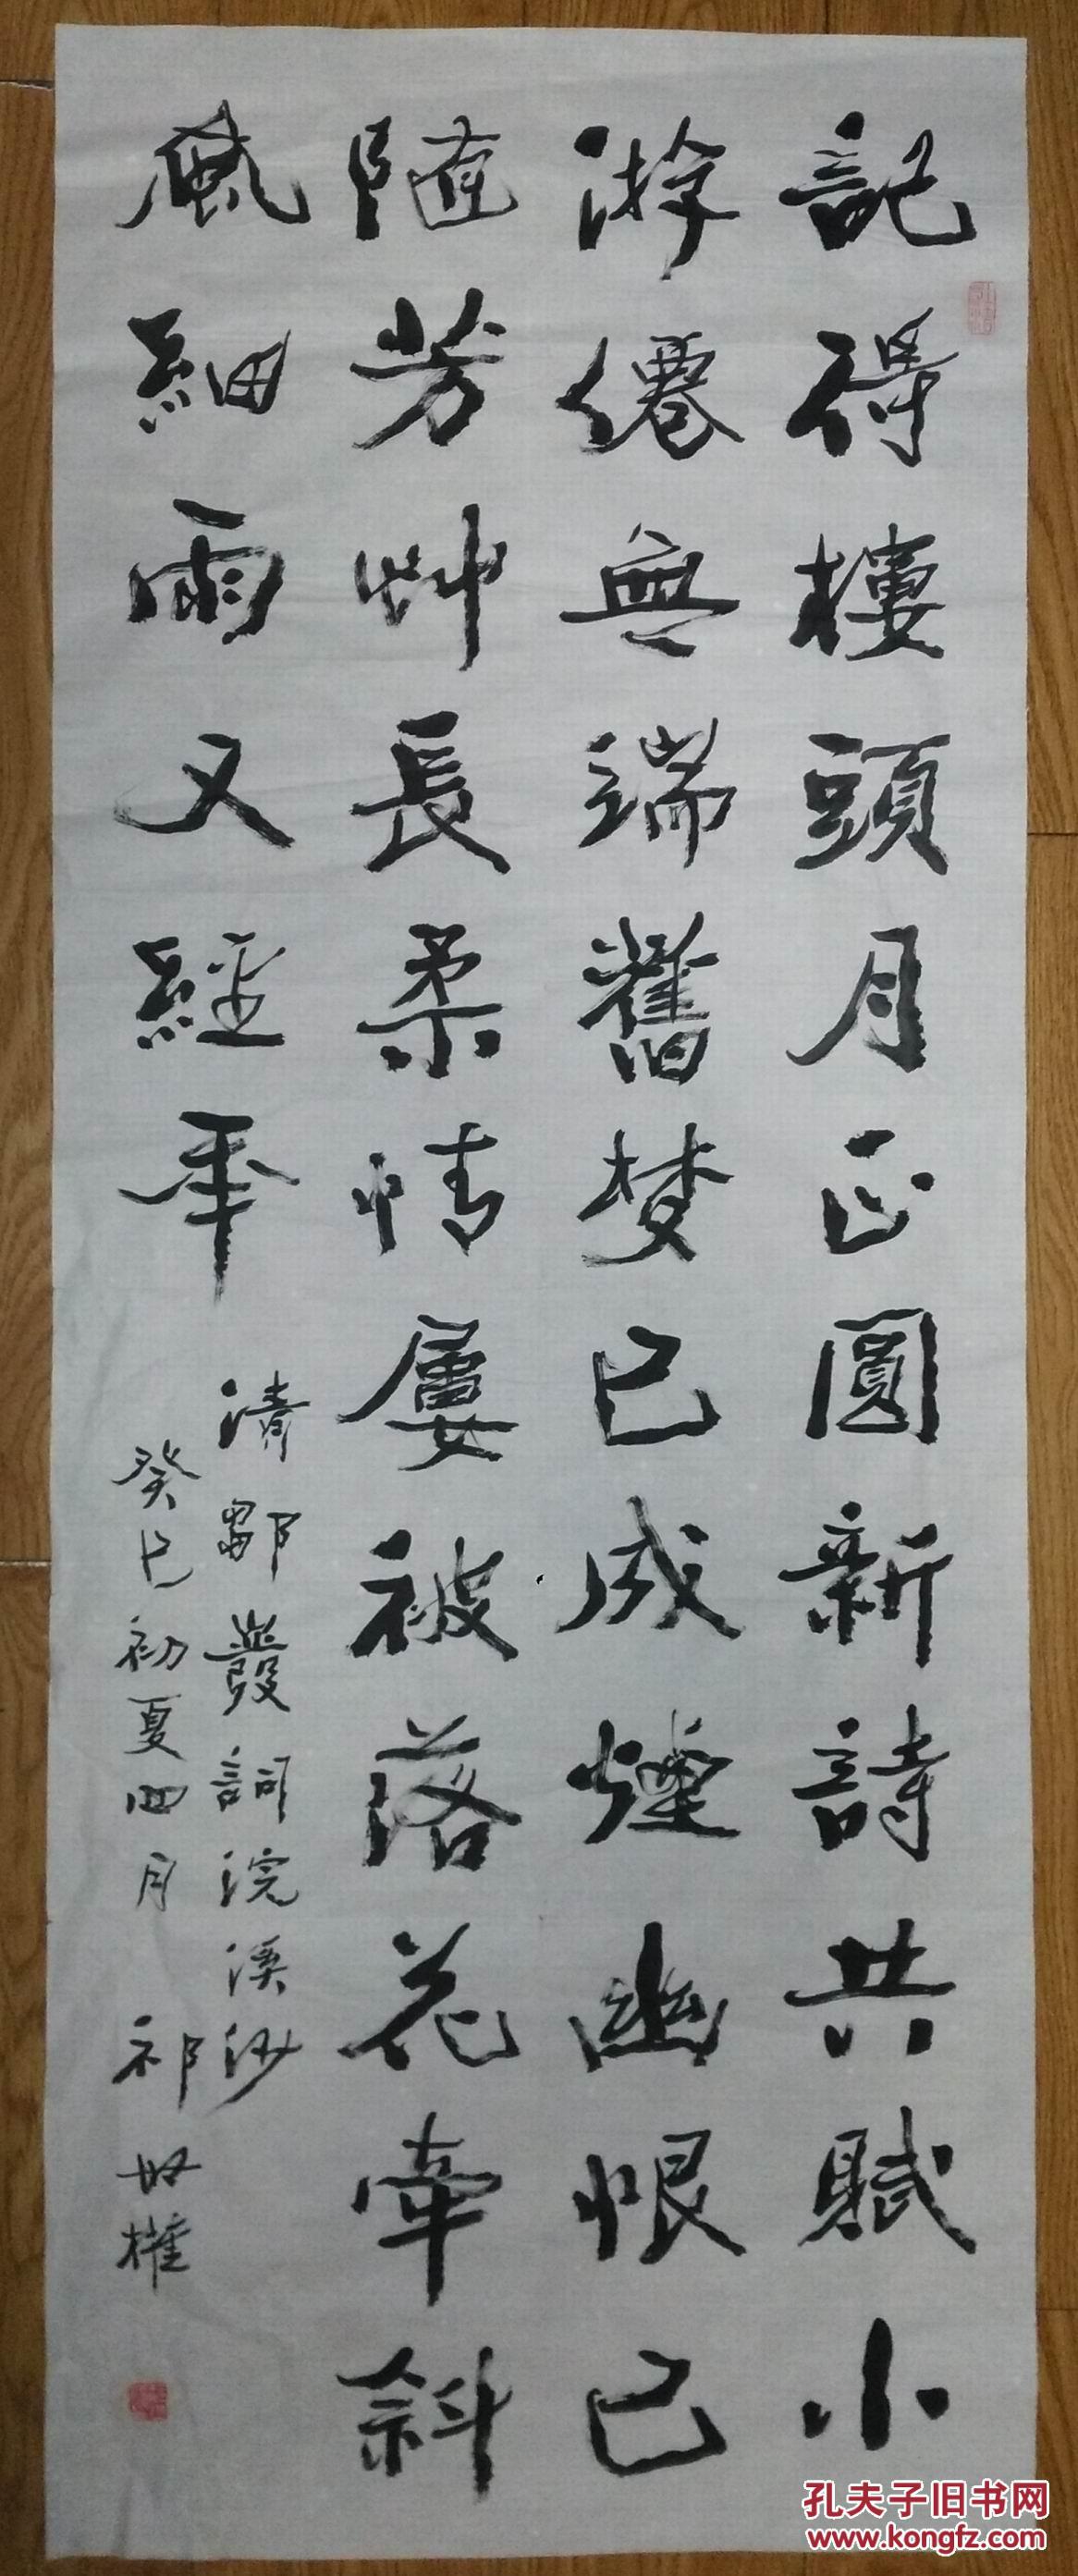 記得樓頭月正圓新詩共賦小
游僊無端舊梦已成煙幽恨已
隨芳艸長柔情屢被落花牽斜
風細雨又經年
清鄒發詞浣溪沙
癸巳初夏四月祁 權
孔夫子旧书网
www.kongfz.com